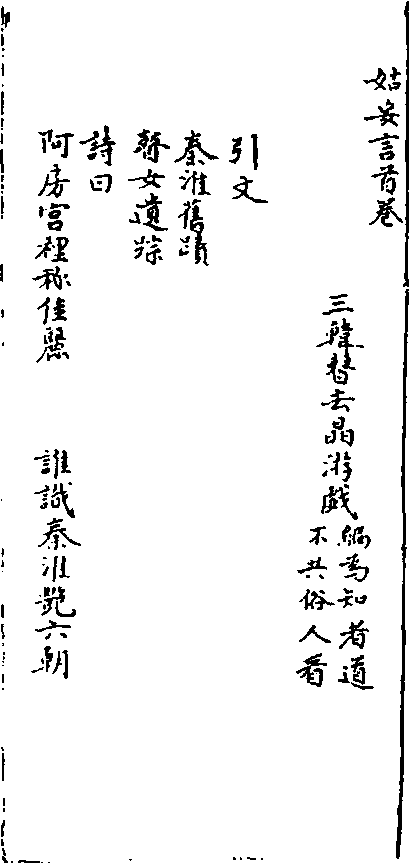 姑妄言首卷
三韓曹去晶游戯
編爲知者道
不共俗人看
引文
秦淮舊蹟
瞽女遺踪
詩曰
阿房宫裡称佳麗　誰識秦淮艷六朝